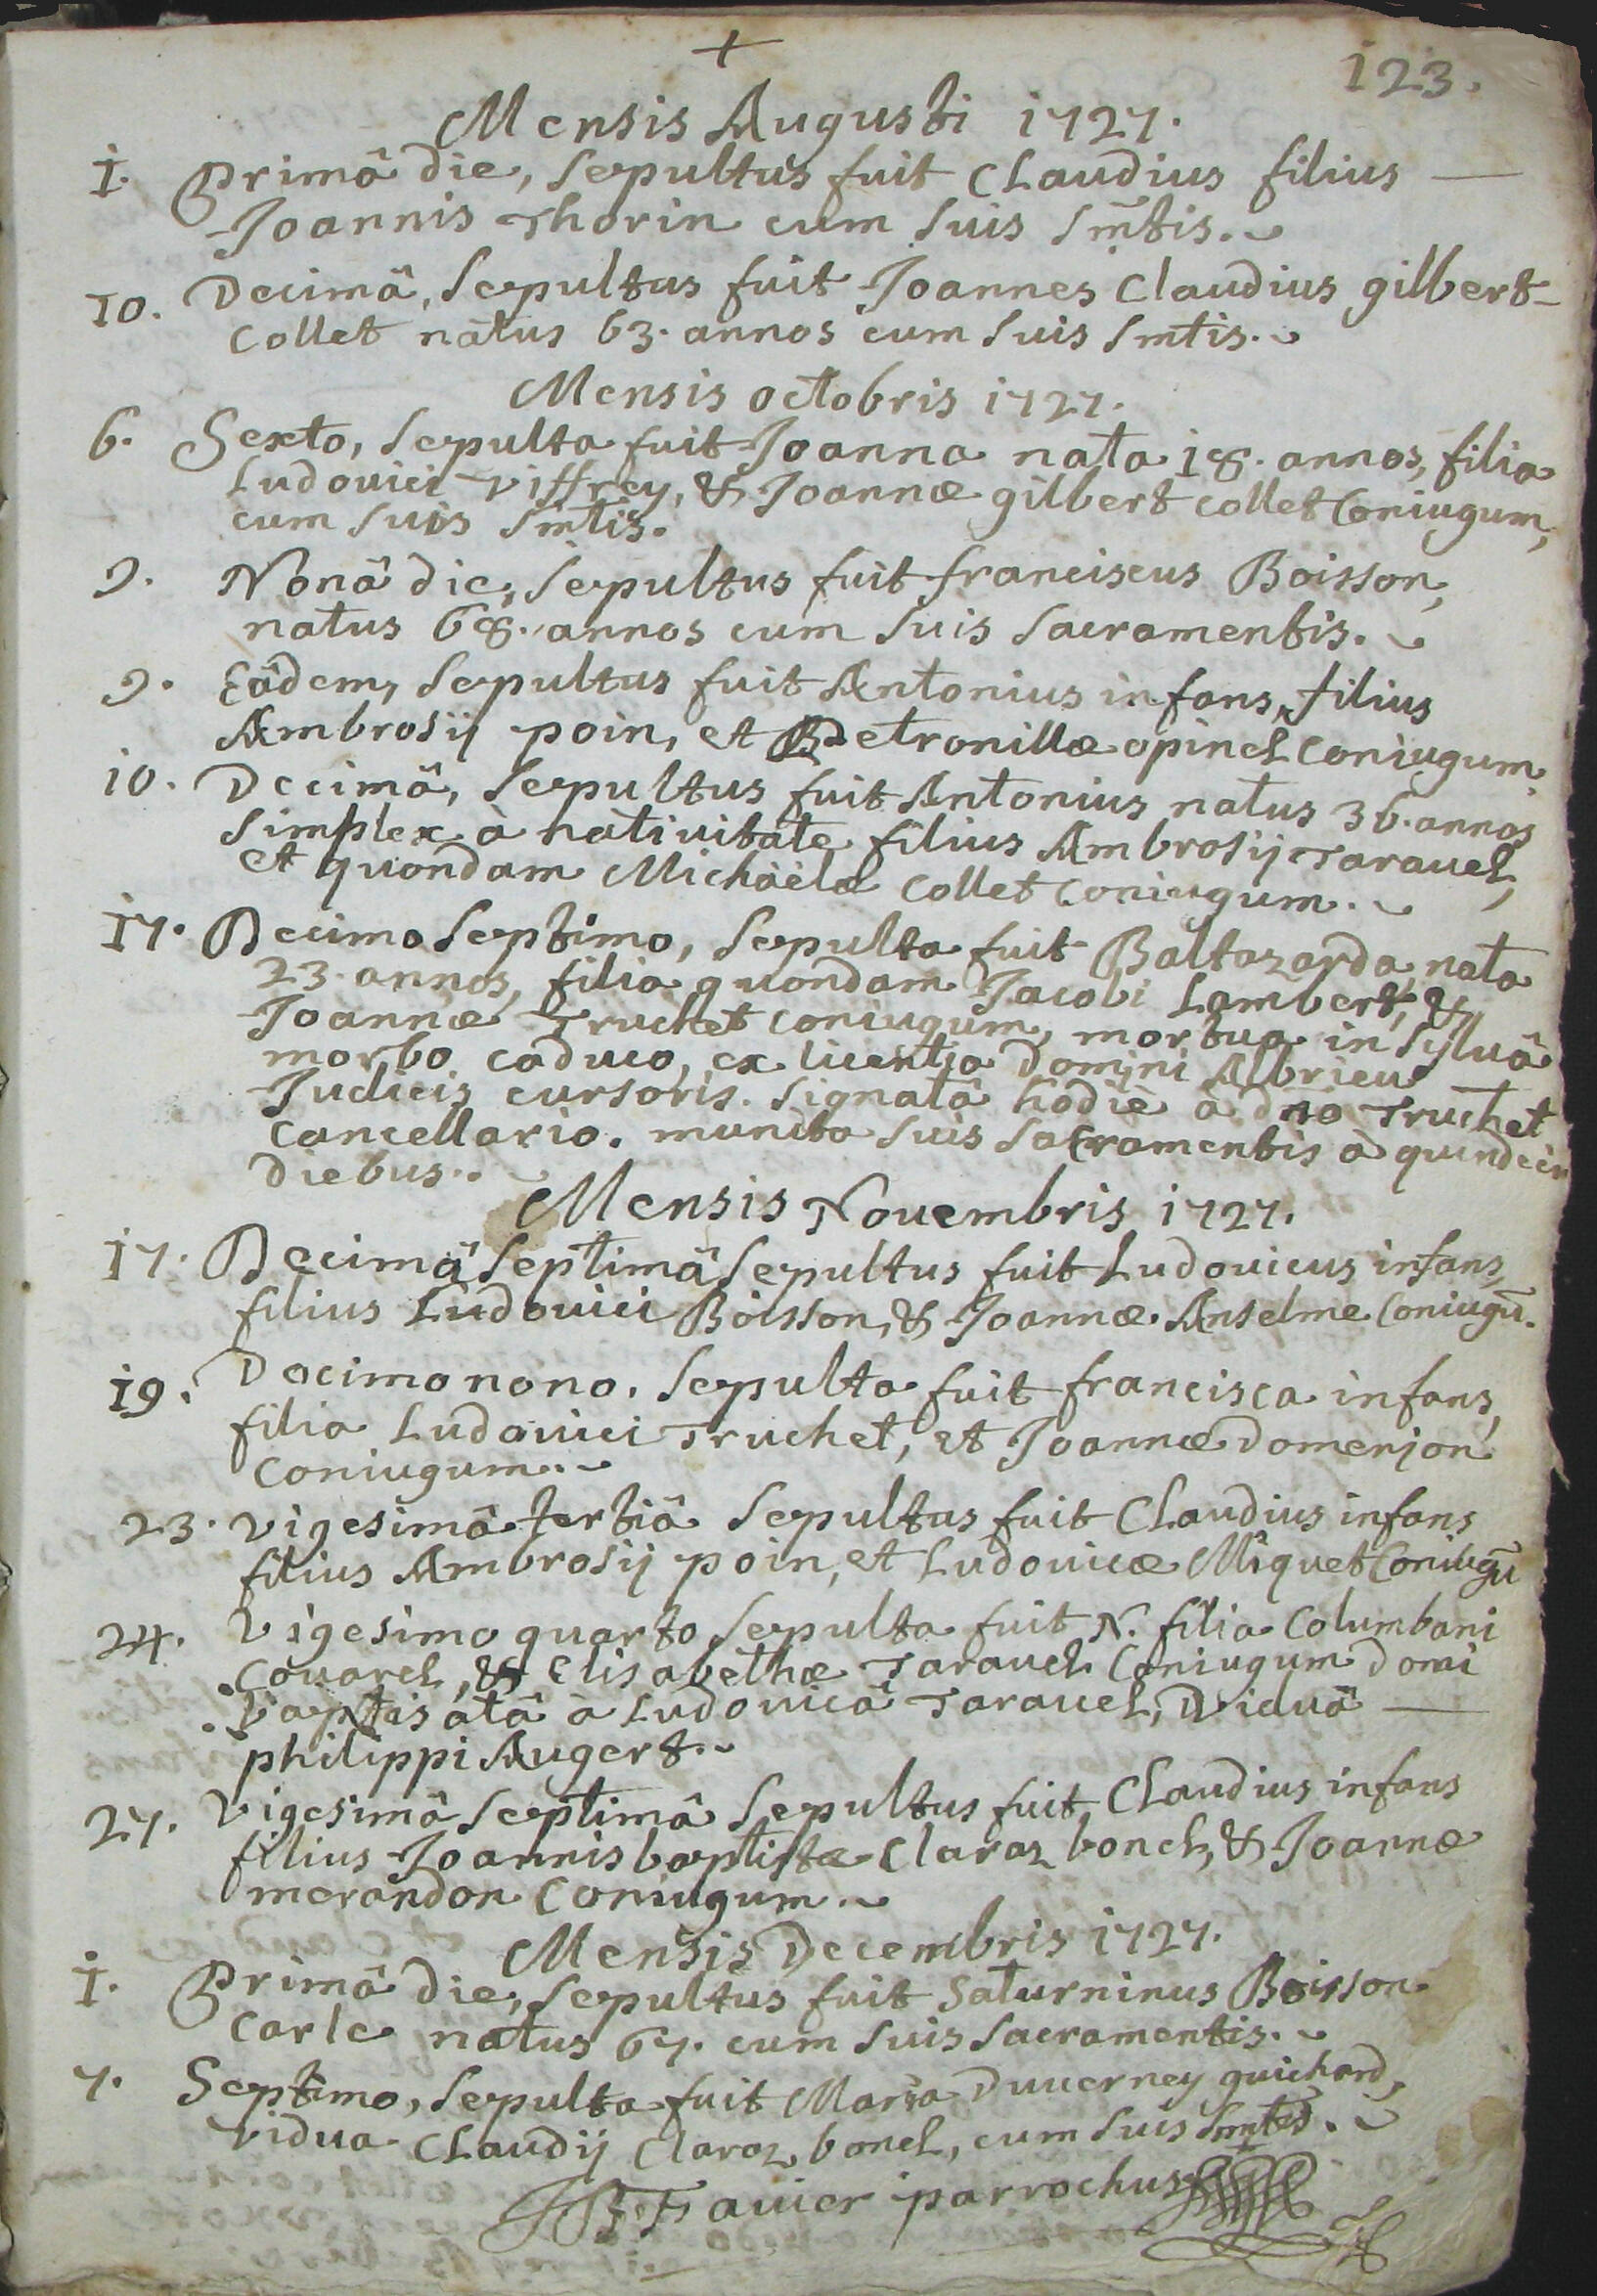 +
123.
Mensis Augusti 1727.
1. Primâ die, sepultus fuit Claudius filius —
Joannis Thorin cum suis smtis.
10. Decimâ, sepultus fuit Joannes Claudius gilbert-
Collet natus 63. annos cum suis smtis.
Mensis octobris 1727.
6. Sexto, sepulta fuit Joanna nata 18. annos, filia
Ludovici Viffrey, & Joannæ gilbert collet Coniugum,
cum suis smtis.
9. Nonâ die, sepultus fuit franciscus Boisson,
natus 68. annos cum suis sacramentis.
9. Eâdem, sepultus fuit Antonius infans, filius
Ambrosij poin, et Petronillæ opinel Coniugum.
10. Decimâ, sepultus fuit Antonius natus 36. annos
simplex à nativitate filius Ambrosij Taravel,
et quondam Michaëlæ Collet Coniugum.
17. Decimo septimo, sepulta fuit Baltazarda nata
23. annos, filia quondam Jacobi Lambert, &
Joannæ Truchet coniugum, mortua in sylvâ
morbo caduco, ex licentia Domini Albrieu
Judicis cursoris. signatâ hodiè a dno Truchet
Cancellario. munita suis sacramentis à quindecim
diebus.
Mensis Novembris 1727.
17. Decimâ septimâ sepultus fuit Ludovicus infans,
filius Ludovici Boisson, & Joannæ Anselme Coniugū.
19. Decimo nono. sepulta fuit francisca infans,
filia Ludovici Truchet, et Joannæ Domenjon
Coniugum.
23. Vigesimâ tertiâ sepultus fuit Claudius infans
filius Ambrosij poin, et Ludovicæ Miquet Coniugū
24. Vigesimo quarto sepulta fuit N. filia Columbani
Covarel, & Elisabethæ Taravel Coniugum domi
baptisatâ à Ludovicâ Taravel, Viduâ —
philippi Augert.
27. Vigesimâ septimâ sepultus fuit Claudius infans
filius Joannis baptistæ Claraz bonel, & Joannæ
merandon Coniugum.
Mensis Decembris 1727.
1. Primâ die, sepultus fuit Saturninus Boisson
Carle natus 67. cum suis sacramentis.
7. Septimo, sepulta fuit Maria Duverney guichard,
vidua Claudij Claraz bonel, cum suis smtis.
Favier parrochus